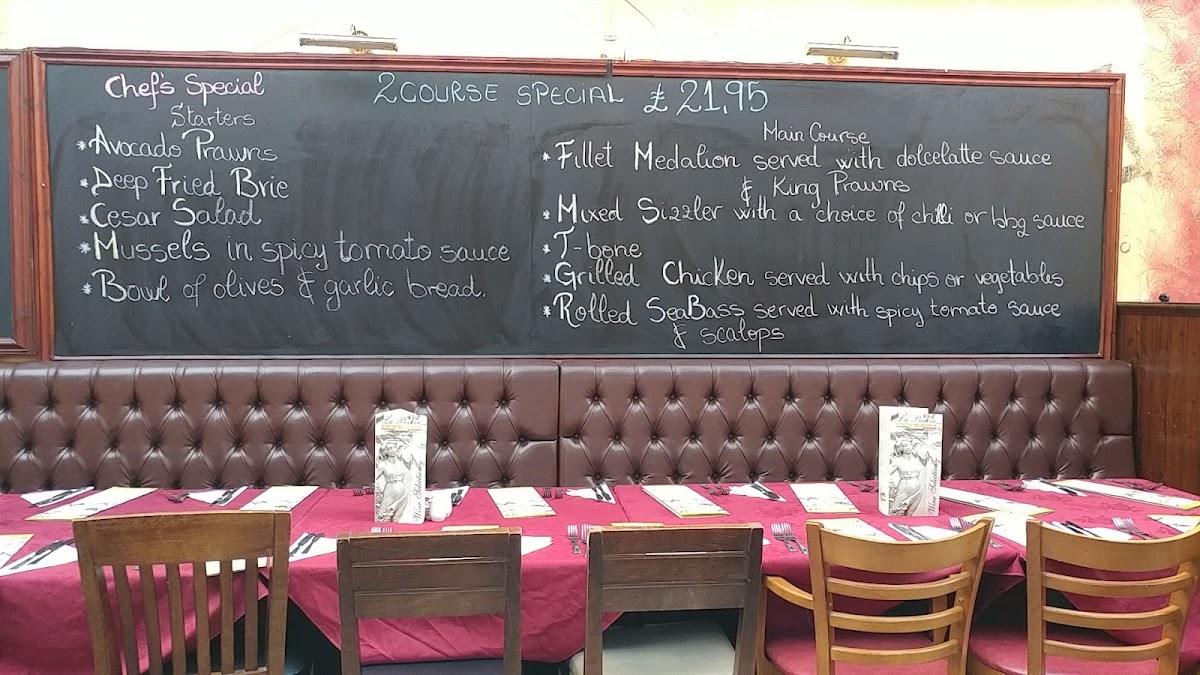 Chef's Special
2 COURSE SPECIAL £ 21,95
Starters
* Avocado Prawns
* Deep Fried Brie
* Cesar Salad
* Mussels in spicy tomato sauce
* Bowl of olives & garlic bread.
Main Course
* Fillet Medalion served with dolcelatte sauce
& King Prawns
* Mixed Sizzler with a choice of chilli or bbq sauce
* T-bone
* Grilled Chicken served with chips or vegetables
* Rolled SeaBass served with spicy tomato sauce
& scalops
Wine Selection